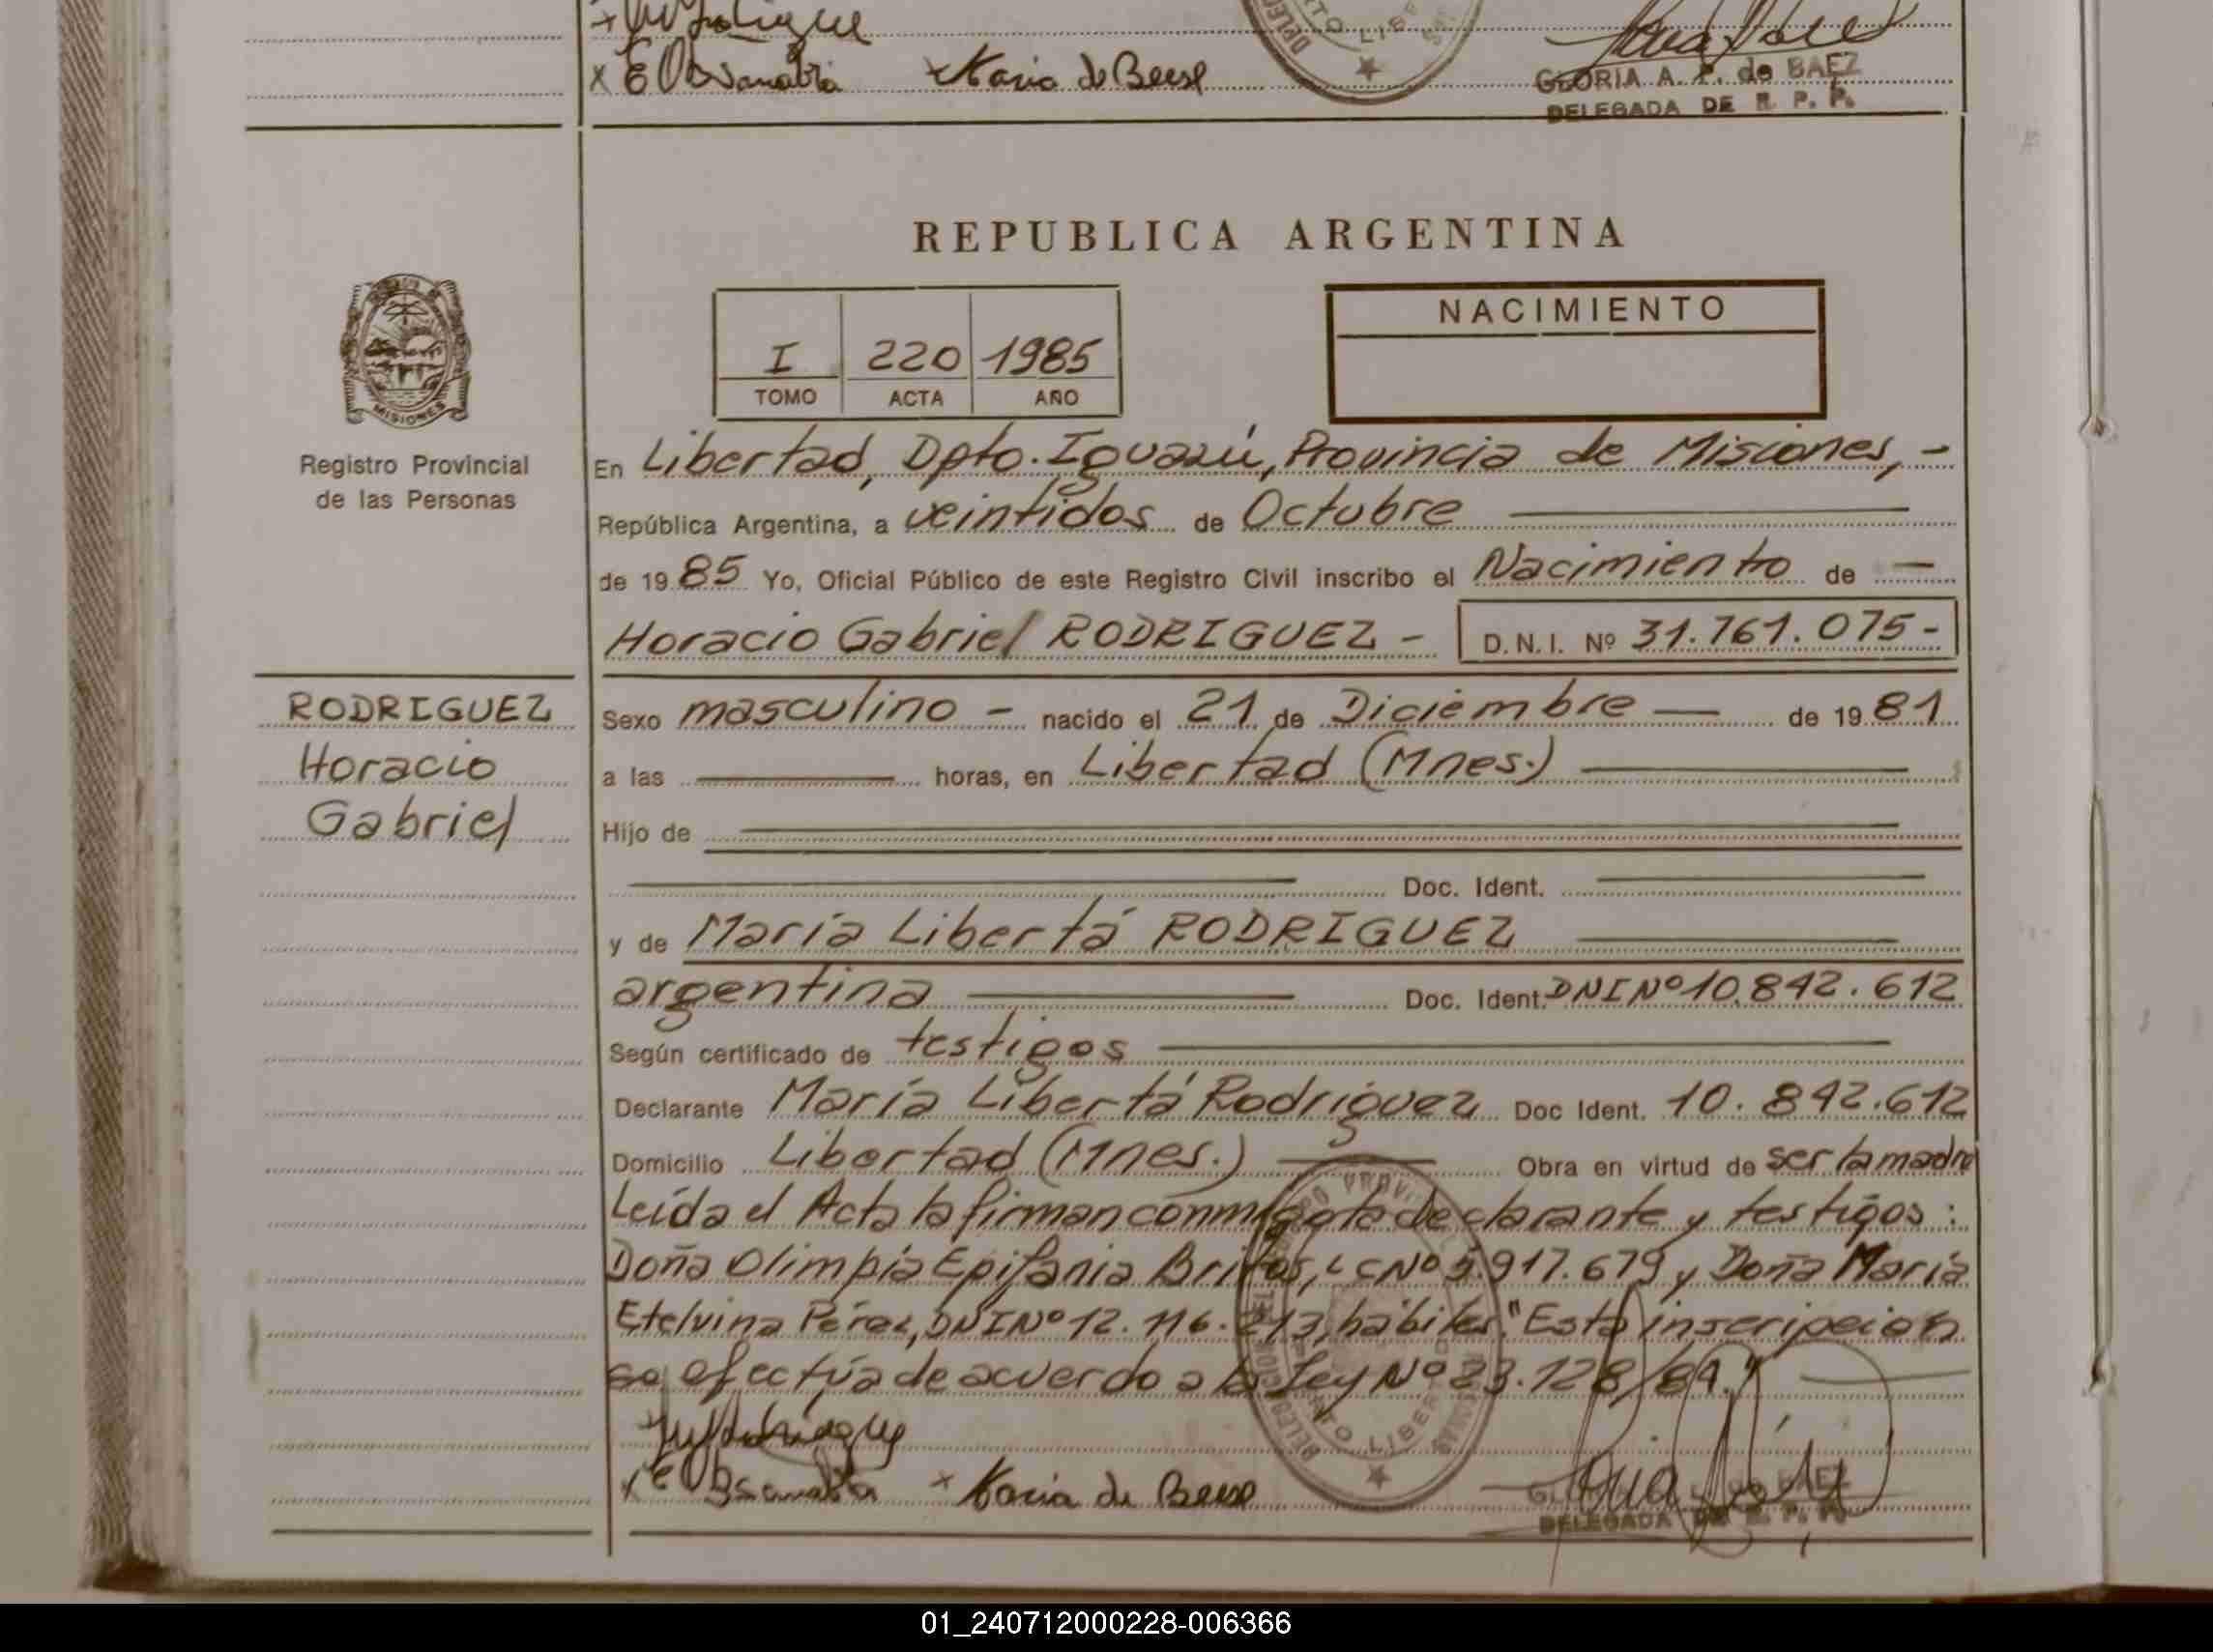 María de Beese
GLORIA A. P. de BAEZ
DELEGADA DE R. P. P.
REPUBLICA ARGENTINA
NACIMIENTO
I 220 1985
TOMO ACTA AÑO
MISIONES
Registro Provincial
de las Personas
En Libertad, Dpto. Iguazú, Provincia de Misiones,-
República Argentina, a veintidos de Octubre
de 1985 Yo, Oficial Público de este Registro Civil inscribo el Nacimiento de —
Horacio Gabriel RODRIGUEZ - D.N.I. Nº 31.761.075-
RODRIGUEZ
Horacio
Gabriel
Sexo masculino - nacido el 21 de Diciembre — de 1981
a las horas, en Libertad (Mnes.)
Hijo de
Doc. Ident.
y de María Libertá RODRIGUEZ
argentina Doc. Ident. DNI Nº 10.842.612
Según certificado de testigos
Declarante María Libertá Rodríguez Doc Ident. 10.842.612
Domicilio Libertad (Mnes.) Obra en virtud de ser la madre
Leída el Acta la firman conmigo la declarante y testigos:
Doña Olimpia Epifania Britos, LC Nº 5.917.679 y Doña María
Etelvina Pérez, DNI Nº 12.116.213, hábiles. "Esta inscripcion
se efectúa de acuerdo a la Ley Nº 23.128/84."
María de Beese
DELEGADA DE R. P. P.
01_240712000228-006366